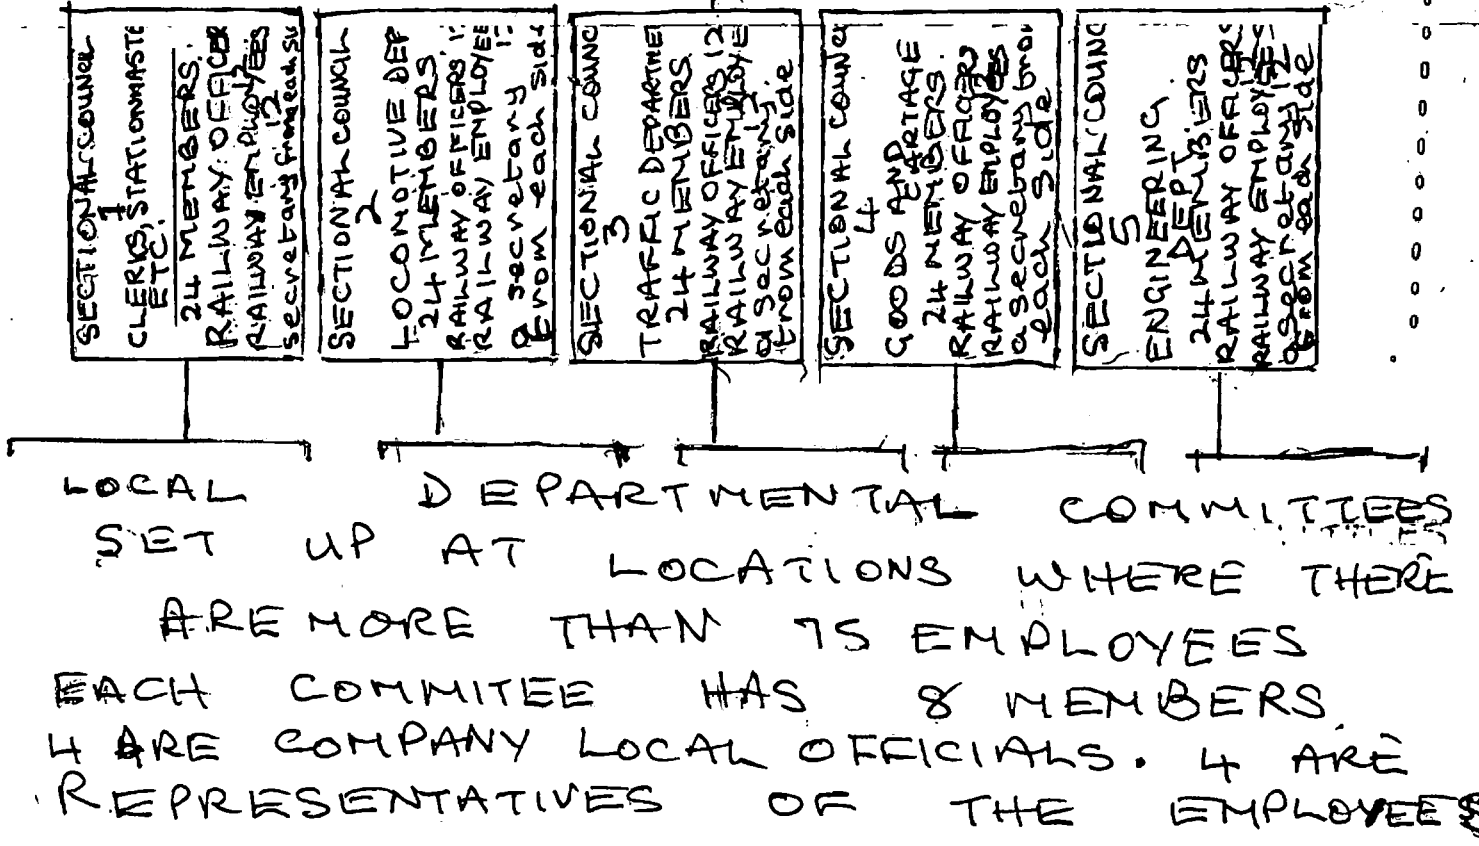 SECTIONAL COUNCIL
1
CLERKS, STATIONMASTE
ETC.
24 MEMBERS.
RAILWAY OFFICER
12
RAILWAY EMPLOYEES
12
secretary from each si
SECTIONAL COUNCIL
2
LOCOMOTIVE DEP
24 MEMBERS
RAILWAY OFFICERS 1
RAILWAY EMPLOYEE
1
a secretary
from each side
SECTIONAL COUNC
3
TRAFFIC DEPARTME
24 MEMBERS.
RAILWAY OFFICERS 12
RAILWAY EMPLOYE
12
a secretary
from each side
SECTIONAL COUNC
4
GOODS AND
CARTAGE
24 MEMBERS.
RAILWAY OFFICERS
12
RAILWAY EMPLOYEES
a secretary from
each side
SECTIONAL COUNC
5
ENGINEERING
DEPT
24 MEMBERS
RAILWAY OFFICERS
12
RAILWAY EMPLOYEES
a secretary 12
from each side
LOCAL DEPARTMENTAL COMMITTEES
SET UP AT LOCATIONS WHERE THERE
ARE MORE THAN 75 EMPLOYEES
EACH COMMITEE HAS 8 MEMBERS.
4 ARE COMPANY LOCAL OFFICIALS. 4 ARE
REPRESENTATIVES OF THE EMPLOYEES